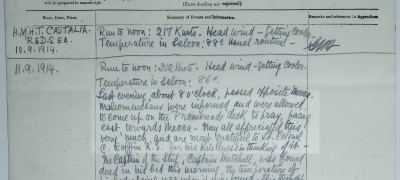 prepared in manuscript.
(Erase heading not required)
Place, Date, Time.
Summary of Events and Information.
Remarks and reference to Appendices.
H.M.H.T. CASTALIA
RED SEA.
10.9.1914.
Run to noon: 217 Knots. Head wind - Getting Cooler.
Temperature in Saloon: 88° Usual routine -
11.9.1914.
Run to noon: Knots. Head wind - Getting Cooler.
Temperature in Saloon: 86°.
Last evening, about 8 o'clock, passed opposite Mecca.
Mahomendans were informed and were allowed
to come up on the Promenade deck to pray, facing
east towards Mecca - May all appreciated this
very much, and are most grateful to Lt. Colonel
C. Coffin R.E. for his kindliness in thinking of it
The Captain of the Ship, Captain Mitchell, was found
dead in his bed this morning, the temperature of